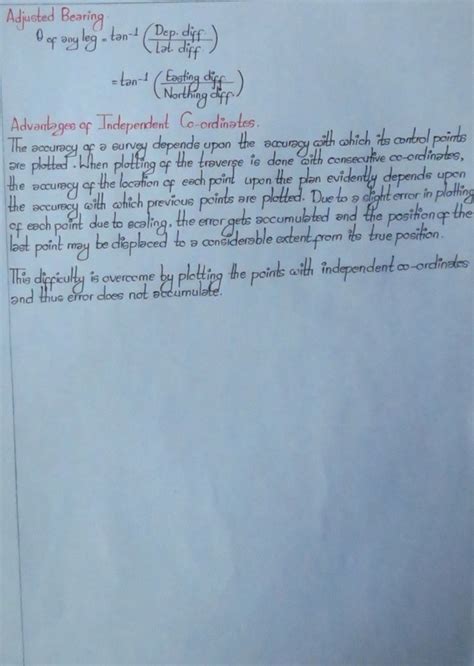 Adjusted Bearing.
θ of any leg = tan⁻¹ (Dep. diff. / Lat. diff.)
= tan⁻¹ (Easting diff. / Northing diff.)
Advantages of Independent Co-ordinates.
The accuracy of a survey depends upon the accuracy with which its control points
are plotted. When plotting of the traverse is done with consecutive co-ordinates,
the accuracy of the location of each point upon the plan evidently depends upon
the accuracy with which previous points are plotted. Due to a slight error in plotting
of each point due to scaling, the error gets accumulated and the position of the
last point may be displaced to a considerable extent from its true position.
This difficulty is overcome by plotting the points with independent co-ordinates
and thus error does not accumulate.